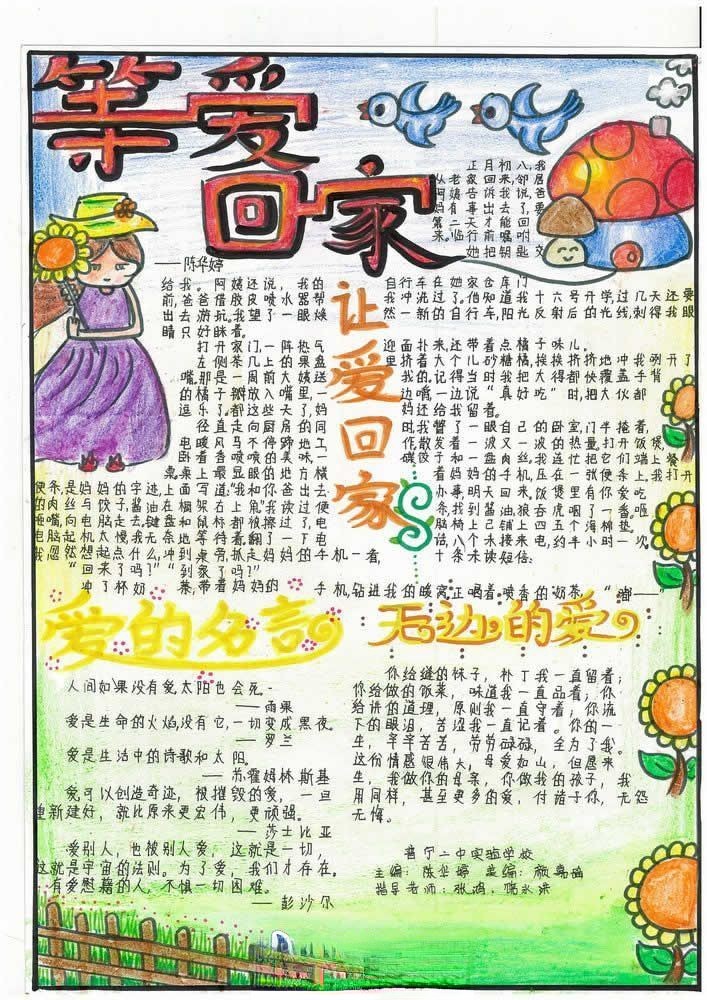 等爱
回家
——陈华婷
正月初八,我
从老家回来,邻居
阿姨告诉我说,爸
妈有事出去了,要
第二天才能回
来。临行前嘱咐
她把钥匙交
给我。阿姨还说,我的
前,爸爸借胶皮喷水器帮
出去游玩。我望了一眼焕
睛只好眯着。
打开家门,一阵热气
左侧茶几上的果盘
嘴,那是一周前大姨送
的橘子瓣放入嘴里,一
逗乐了,都这些天了,妈
径直走向厨房的同
电暖风马不停蹄地工
卧着香喷喷的美味,一
桌上最显眼的地方横
便条,是妈妈的字迹,上面写道:"我和你爸出去
的肉丝与饺子,酱油在橱架右上
嘴,向电脑走去,键盘和鼠标都被擦过了,电
电脑机太慢,我无奈地等待着,翻了一下电
我忽然想起点什么,冲到桌旁,抓走妈妈的手机一看,
"回来了吗?""到家了吗?"
冲了杯奶茶,带着妈妈的
让爱回家
自行车在她家仓库门
我冲洗过了。他知道我十六号开学,过几天还要
然一新的自行车,阳光反射后的光线,刺得我眼
迎面扑来,还带着点橘子味儿。
里挤着大个儿砂糖橘,挨挨挤挤地冲我咧开了
我的,记得当时我把大得都快覆盖手背
边嘴一边说"真好吃"时,把大伙都
妈还给我留着。
时,我瞥了一眼自己的卧室,门半掩着,
作,散发着一波又一波的热量,打开饭煲
碟饺子和一盘肉丝,我连忙把它们端上餐
着妈妈的手机,压在一张便条上,我打开
办事,明天回来,饭煲里有你爱吃
条,我到酱油,狼吞虎咽了一番,咂
脑椅上已铺上四五个海棉垫。
话,八个未接来电,约半小时一次,
十条未读短信:
手机,钻进我的暖窝,正喝着喷香的奶茶,"嘟——
爱的名言
人间如果没有爱,太阳也会死。
——雨果
爱是生命的火焰,没有它,一切变成黑夜。
——罗兰
爱是生活中的诗歌和太阳。
——苏霍姆林斯基
爱可以创造奇迹,被摧毁的爱,一旦
重新建好,就比原来更宏伟,更顽强。
——莎士比亚
爱别人,也被别人爱,这就是一切,
这就是宇宙的法则。为了爱,我们才存在。
有爱慰藉的人,不惧一切困难。
——彭沙尔
无边的爱
你给缝的袜子,补丁我一直留着;
你给做的饭菜,味道我一直品着;你
给讲的道理,原则我一直守着;你流
下的眼泪,苦涩我一直记着。你的一
生,辛辛苦苦,劳劳碌碌,全为了我。
这份情感很伟大,母爱如山,但愿来
生,我做你的母亲,你做我的孩子,我
用同样,甚至更多的爱,付诸于你,无怨
无悔。
普宁二中实验学校
主编:陈华婷 美编:颜
指导老师:张鸿